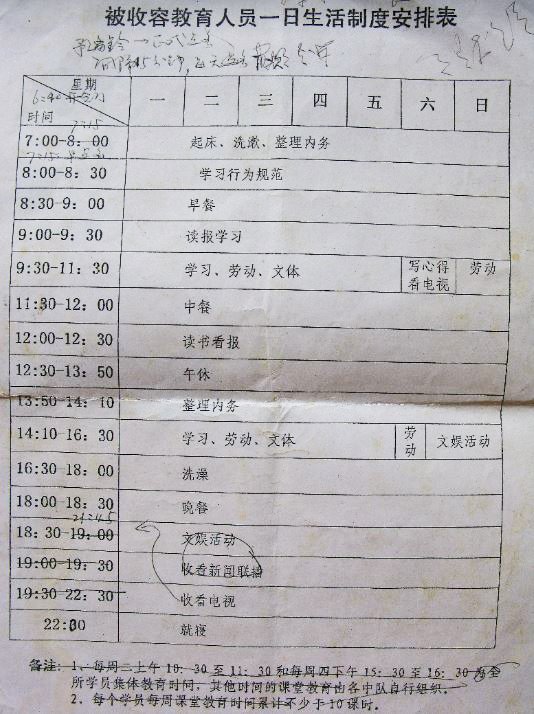 被收容教育人员一日生活制度安排表
星期
时间
一 二 三 四 五 六 日
7:00-8:00 起床、洗漱、整理内务
8:00-8:30 学习行为规范
8:30-9:00 早餐
9:00-9:30 读报学习
9:30-11:30 学习、劳动、文体 写心得 劳动
看电视
11:30-12:00 中餐
12:00-12:30 读书看报
12:30-13:50 午休
13:50-14:10 整理内务
14:10-16:30 学习、劳动、文体 劳动 文娱活动
16:30-18:00 洗澡
18:00-18:30 晚餐
18:30-19:00 文娱活动
19:00-19:30 收看新闻联播
19:30-22:30 收看电视
22:30 就寝
备注：1、每周二上午10：30至11：30和每周四下午15：30至16：30为全
所学员集体教育时间，其他时间的课堂教育由各中队自行组织。
2、每个学员每周课堂教育时间累计不少于10课时。